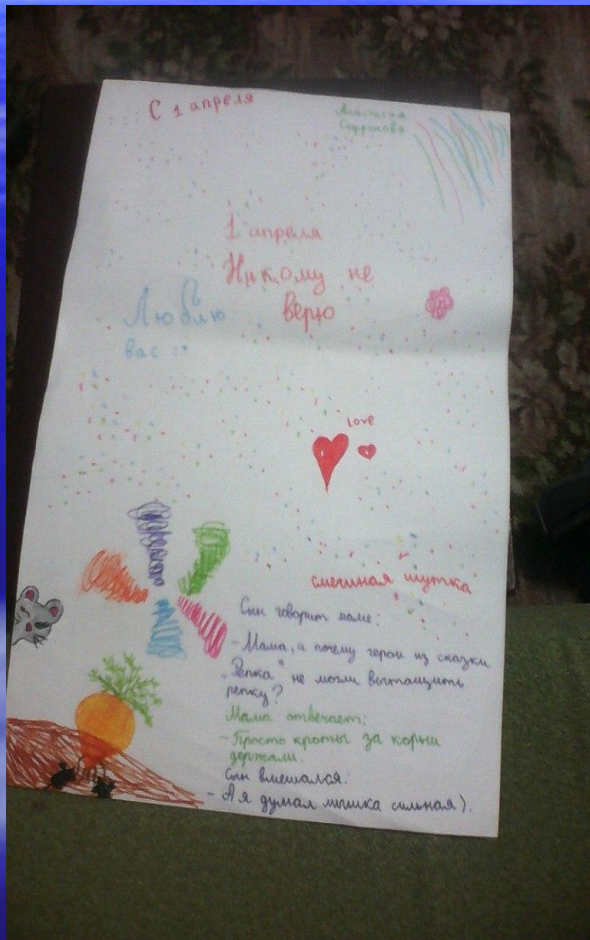 С 1 апреля
Анастасия
1 апреля
Никому не
верю
Люблю
вас :*
Love
смешная шутка
Сын говорит маме:
- Мама, а почему герои из сказки
„Репка" не могли вытащить
репку?
Мама отвечает:
- Просто кроты за корни
держали.
Сын вмешался:
- А я думал мышка сильная).